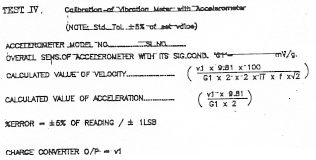 TEST IV. Calibration of Vibration Meter with Accelerometer
(NOTE: Std. Tol. ±5% of set value)
ACCELEROMETER MODEL NO. SL.NO.
OVERALL SENS.OF ACCELEROMETER WITH ITS SIG.COND. 'G1' mV/g.
CALCULATED VALUE OF VELOCITY ( v1 x 9.81 x 100 / G1 x 2 x 2 x π x f x √2 )
CALCULATED VALUE OF ACCELERATION ( v1 x 9.81 / G1 x 2 )
%ERROR = ±5% OF READING / ± 1LSB
CHARGE CONVERTER O/P = v1